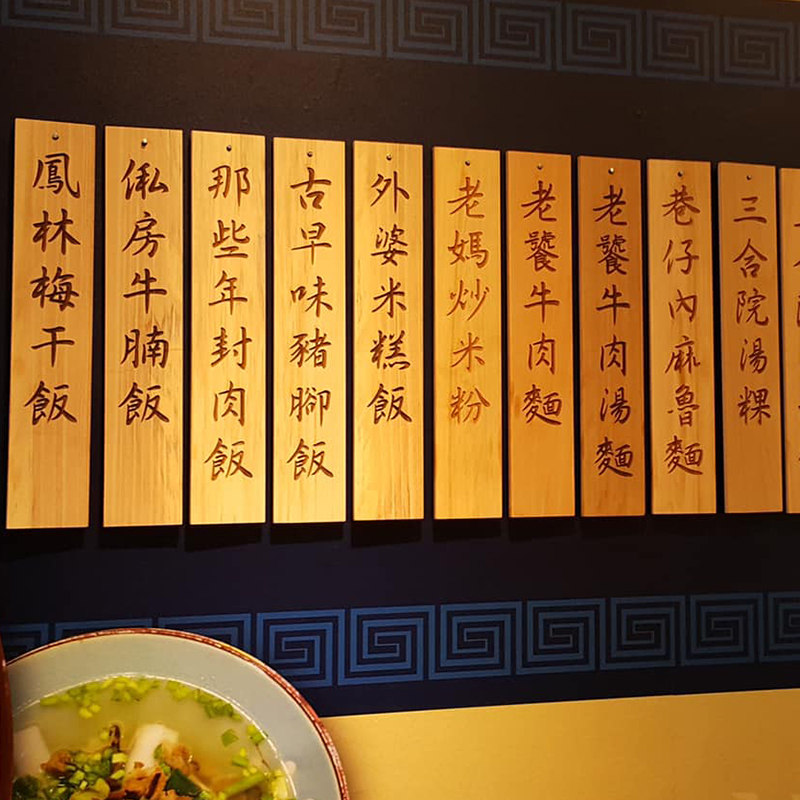 三合院湯粿
巷仔內麻魯麵
老饕牛肉湯麵
老饕牛肉麵
老媽炒米粉
外婆米糕飯
古早味豬腳飯
那些年封肉飯
俬房牛腩飯
鳳林梅干飯